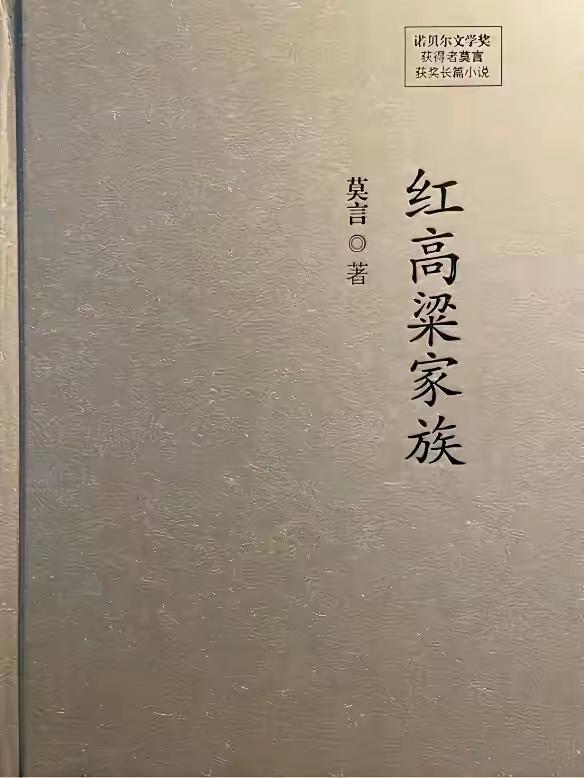 诺贝尔文学奖
获得者莫言
获奖长篇小说
红高粱家族
莫言◎著